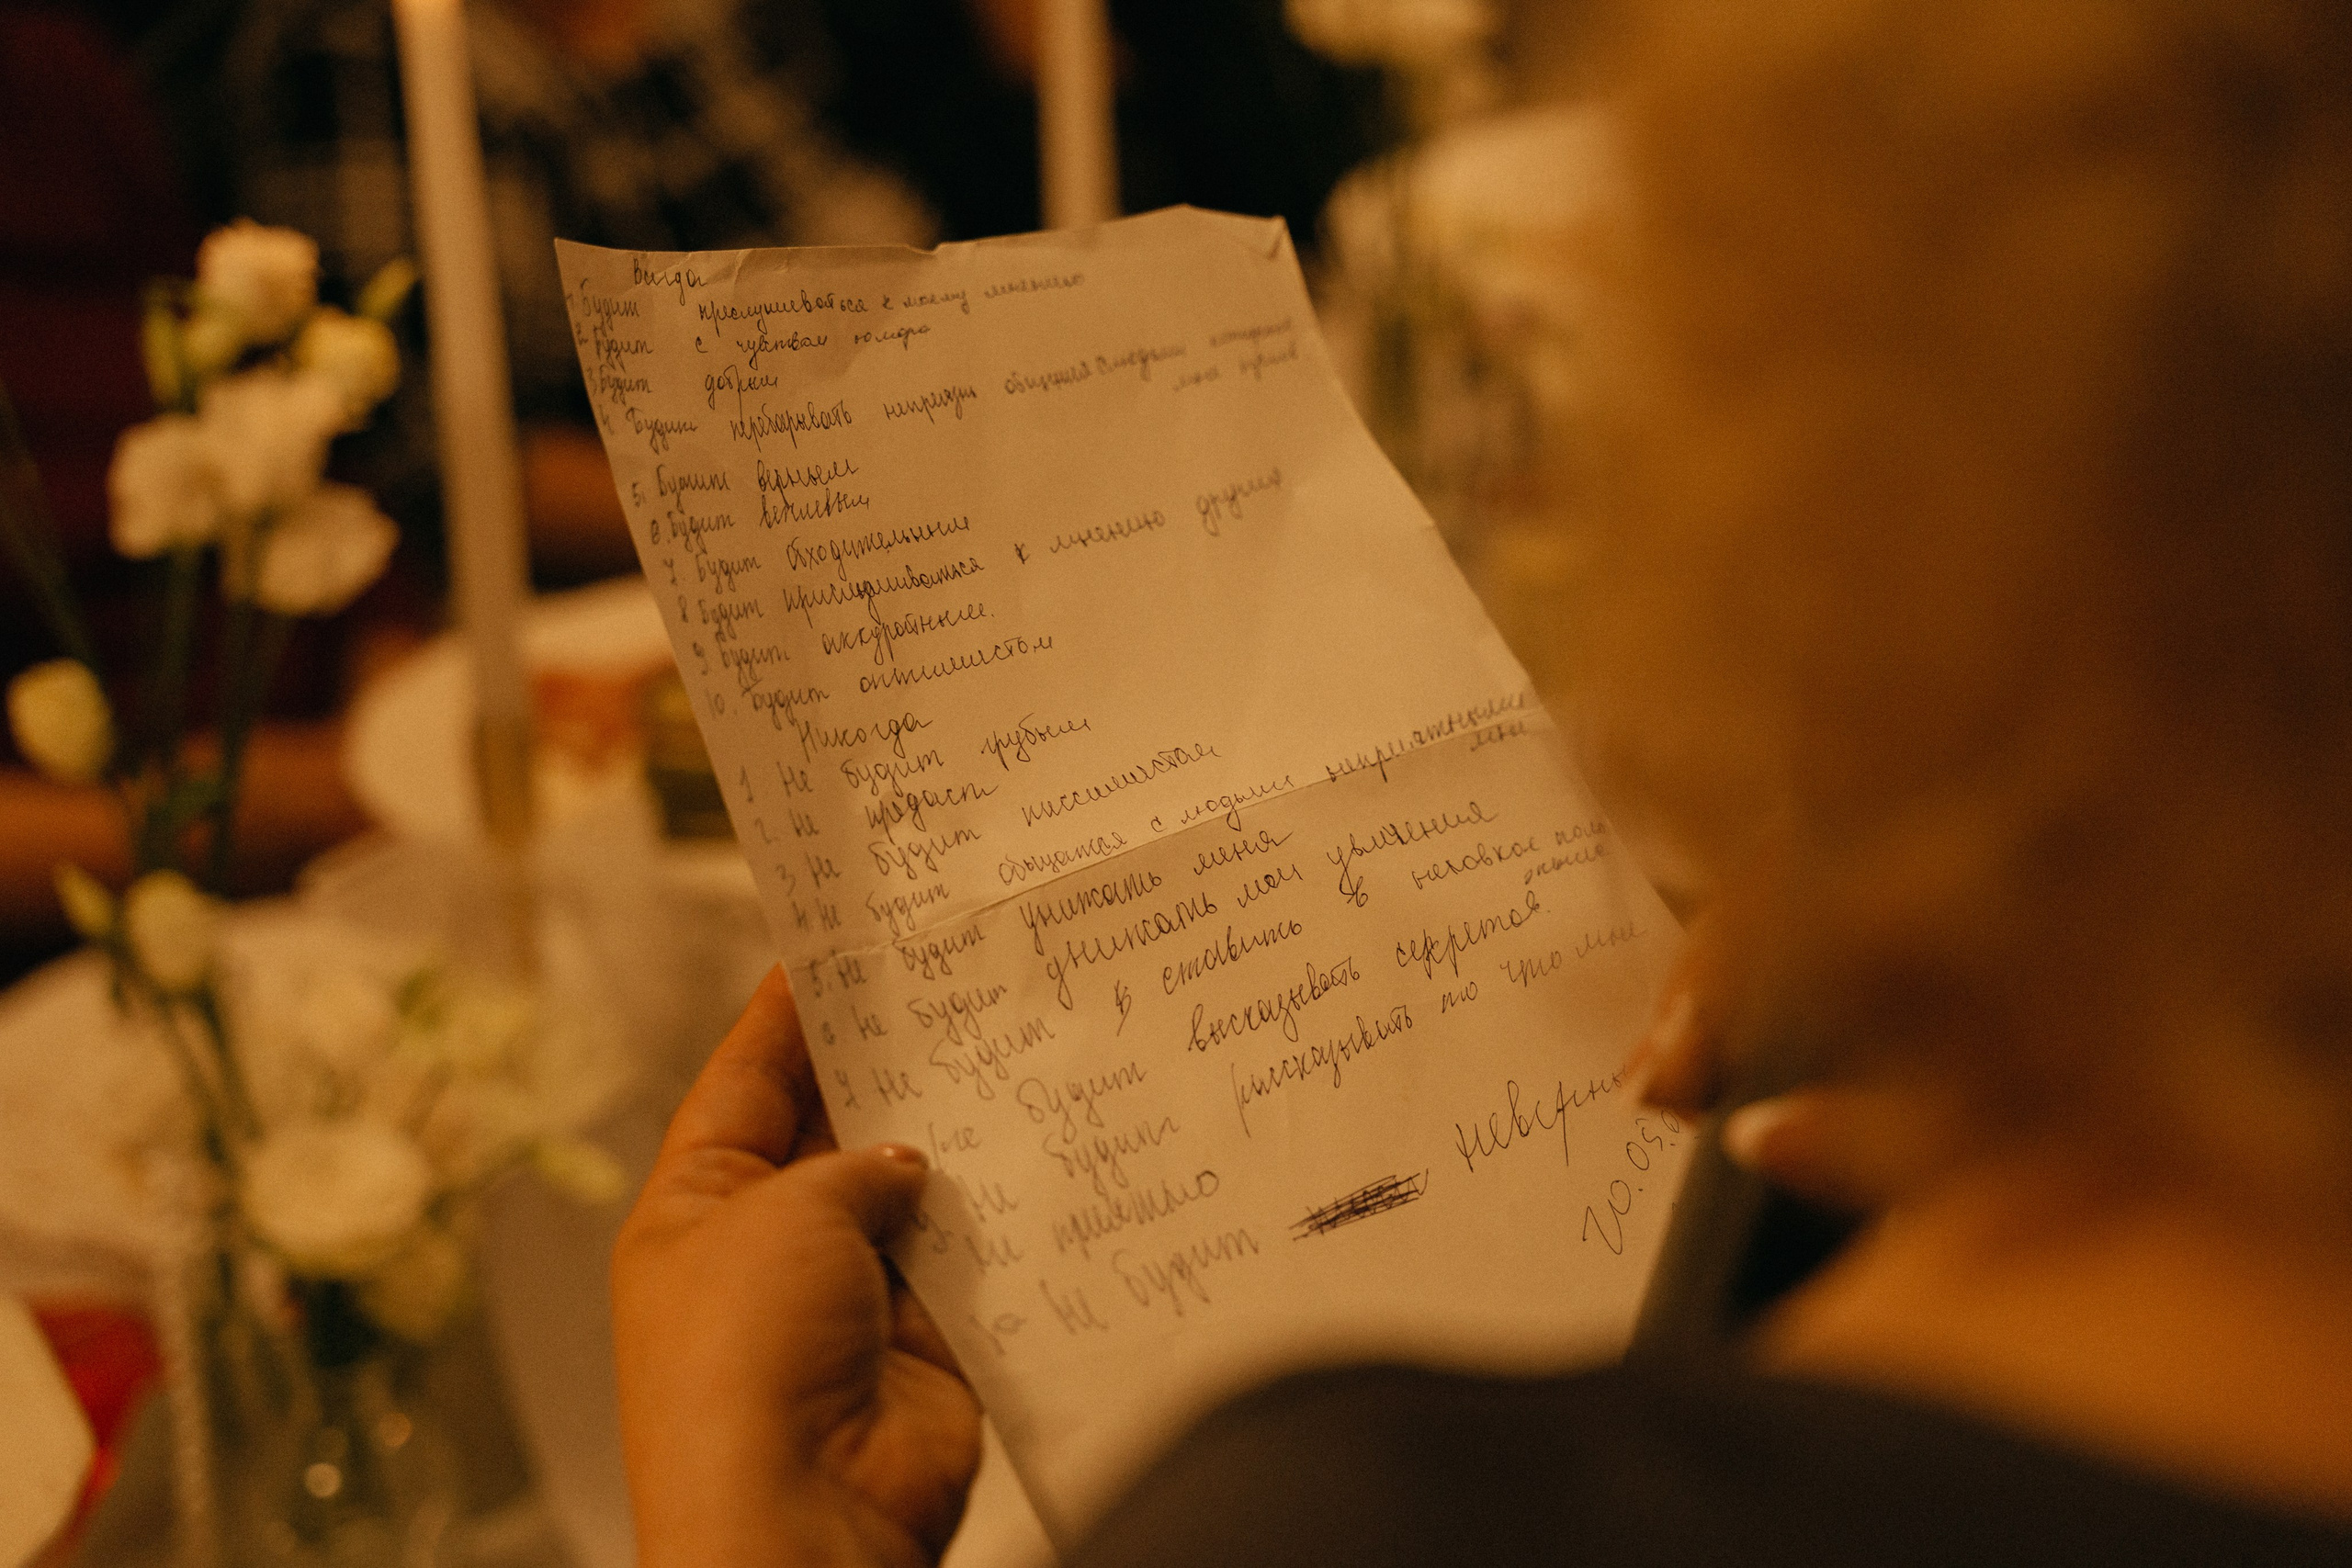 Всегда
1. Будит прислушеваться к моему мнению
2. Будит с чувством юмора
3. Будит добрым
4. Будит перебарывать неприязнь общения с людьми которые
мне нужные
5. Будит верным
6. Будит вежлевым
7. Будит обходительным
8 Будит прислушиваться к мнению других
9. Будит аккуратным.
10. Будит оптимистом
Никогда
1. Не будит грубым
2. Не предаст
3 Не будит писсимистом
4. Не будит общатся с людьми неприятными
мне
5. Не будит унижать меня
6 Не будит унижать мои увличения
7 Не будит ставить в неловкое поло
Не будит высказывать секретов.
9. Не будит рассказывать то что мне
не приятно
10 Не будит неверны
20.05.